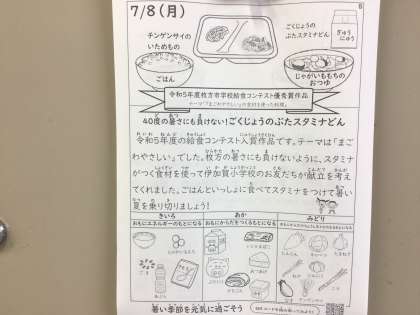 7/8(月)
8
チンゲンサイの
いためもの
ごくじょうの
ぶたスタミナどん
ぎゅう
にゅう
ごはん
じゃがいももちの
おつゆ
令和5年度枚方市学校給食コンテスト優秀賞作品
テーマ「『まごわやさしい』の食材を使った料理」
40度の暑さにも負けない!ごくじょうのぶたスタミナどん
令和5年度の給食コンテスト入賞作品です。テーマは「まご
わやさしい」でした。枚方の暑さにも負けないように、スタミナ
がつく食材を使って伊加賀小学校のお友だちが献立を考え
てくれました。ごはんといっしょに食べてスタミナをつけて暑い
夏を乗り切りましょう!
きいろ
あか
みどり
おもにエネルギーのもとになる
おもにからだをつくるもとになる
にんじん
たまねぎ
チンゲンサイ
暑い季節を元気に過ごそう